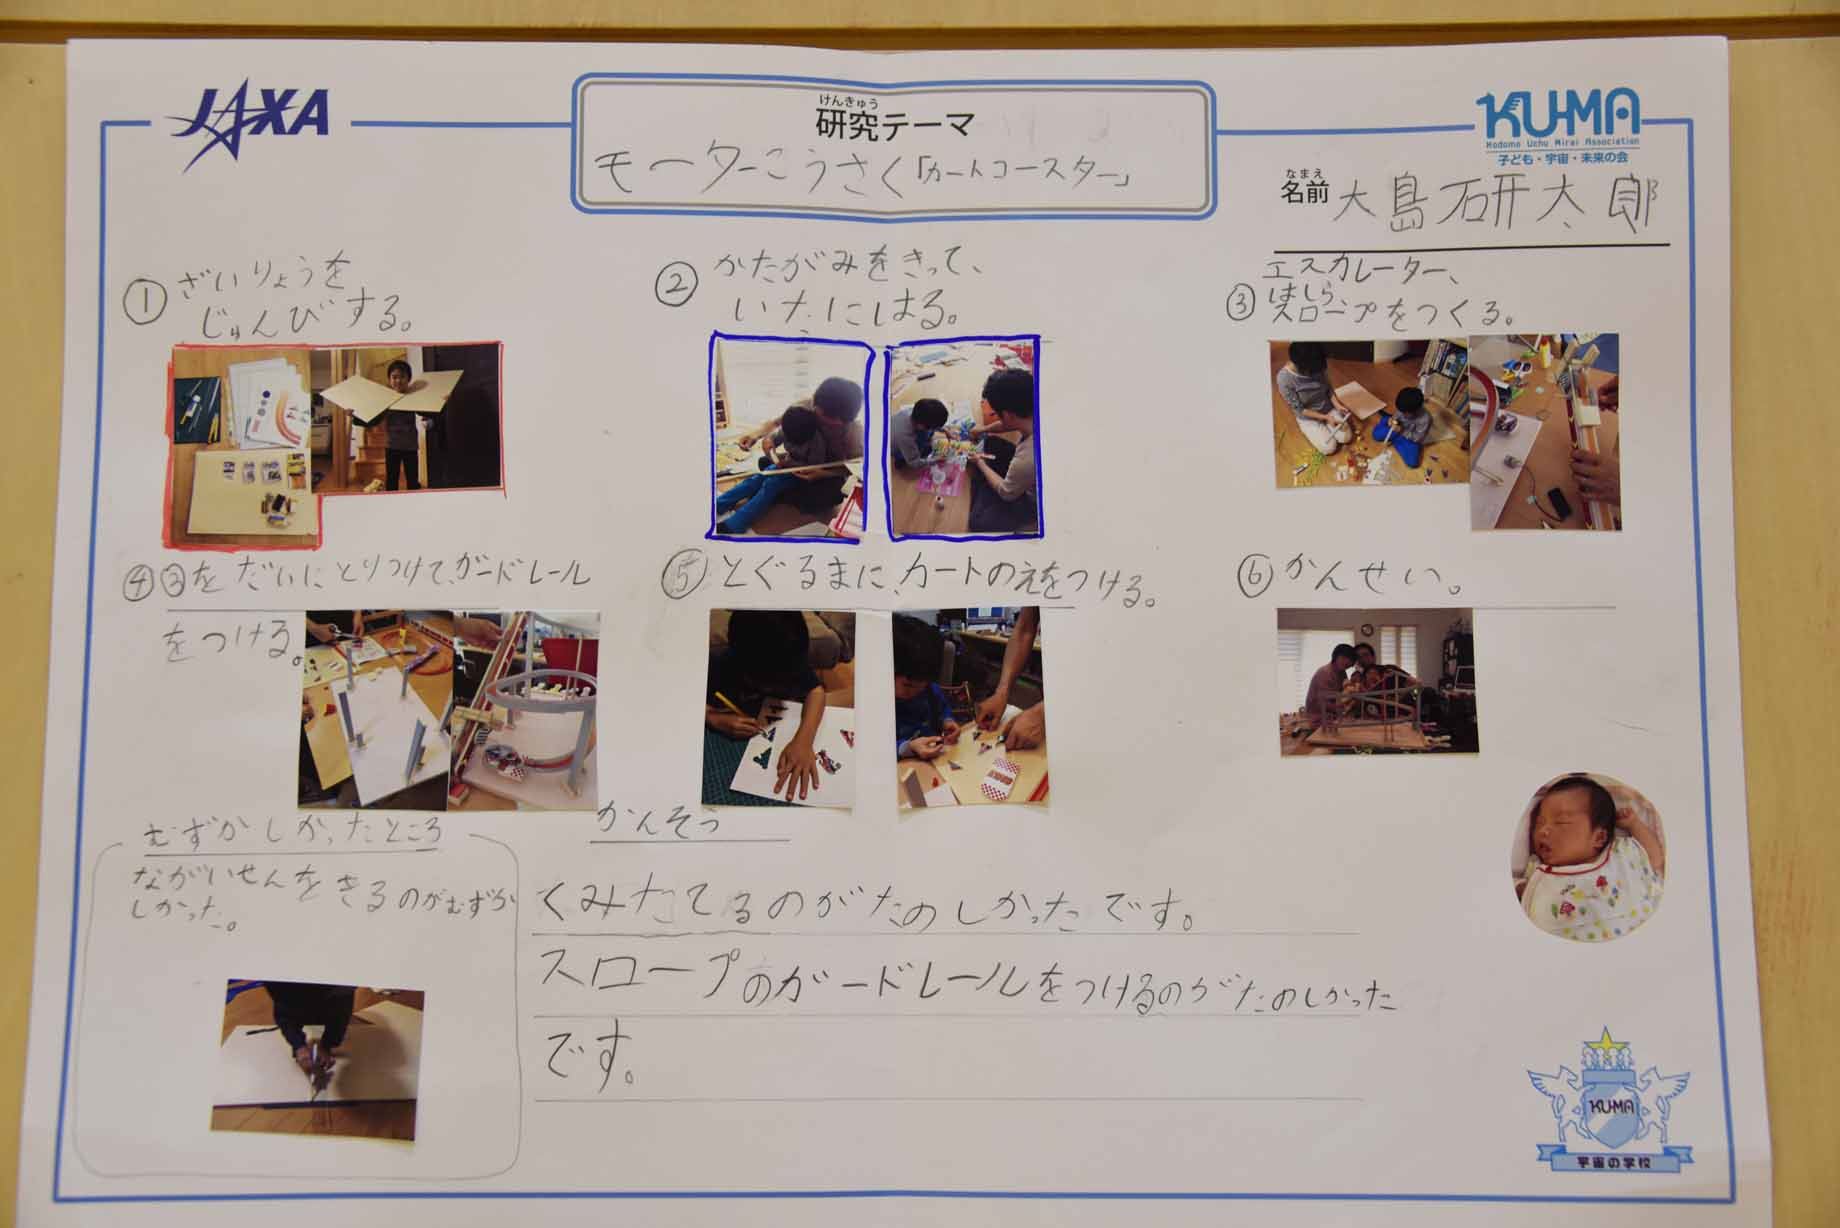 JAXA
けんきゅう
研究テーマ
モーターこうさく「カートコースター」
KU-MA
Kodomo Uchu Mirai Association
子ども・宇宙・未来の会
なまえ
名前 大島研太郎
① ざいりょうを
じゅんびする。
② かたがみをきって、
いたにはる。
③ エスカレーター、
はしら
スロープをつくる。
④ ③をだいにとりつけて、ガードレール
をつける。
⑤ とぐるまに、カートのえをつける。
⑥ かんせい。
むずかしかったところ
ながいせんをきるのがむずか
しかった。
かんそう
くみたてるのがたのしかったです。
スロープのガードレールをつけるのがたのしかった
です。
KU-MA
宇宙の学校